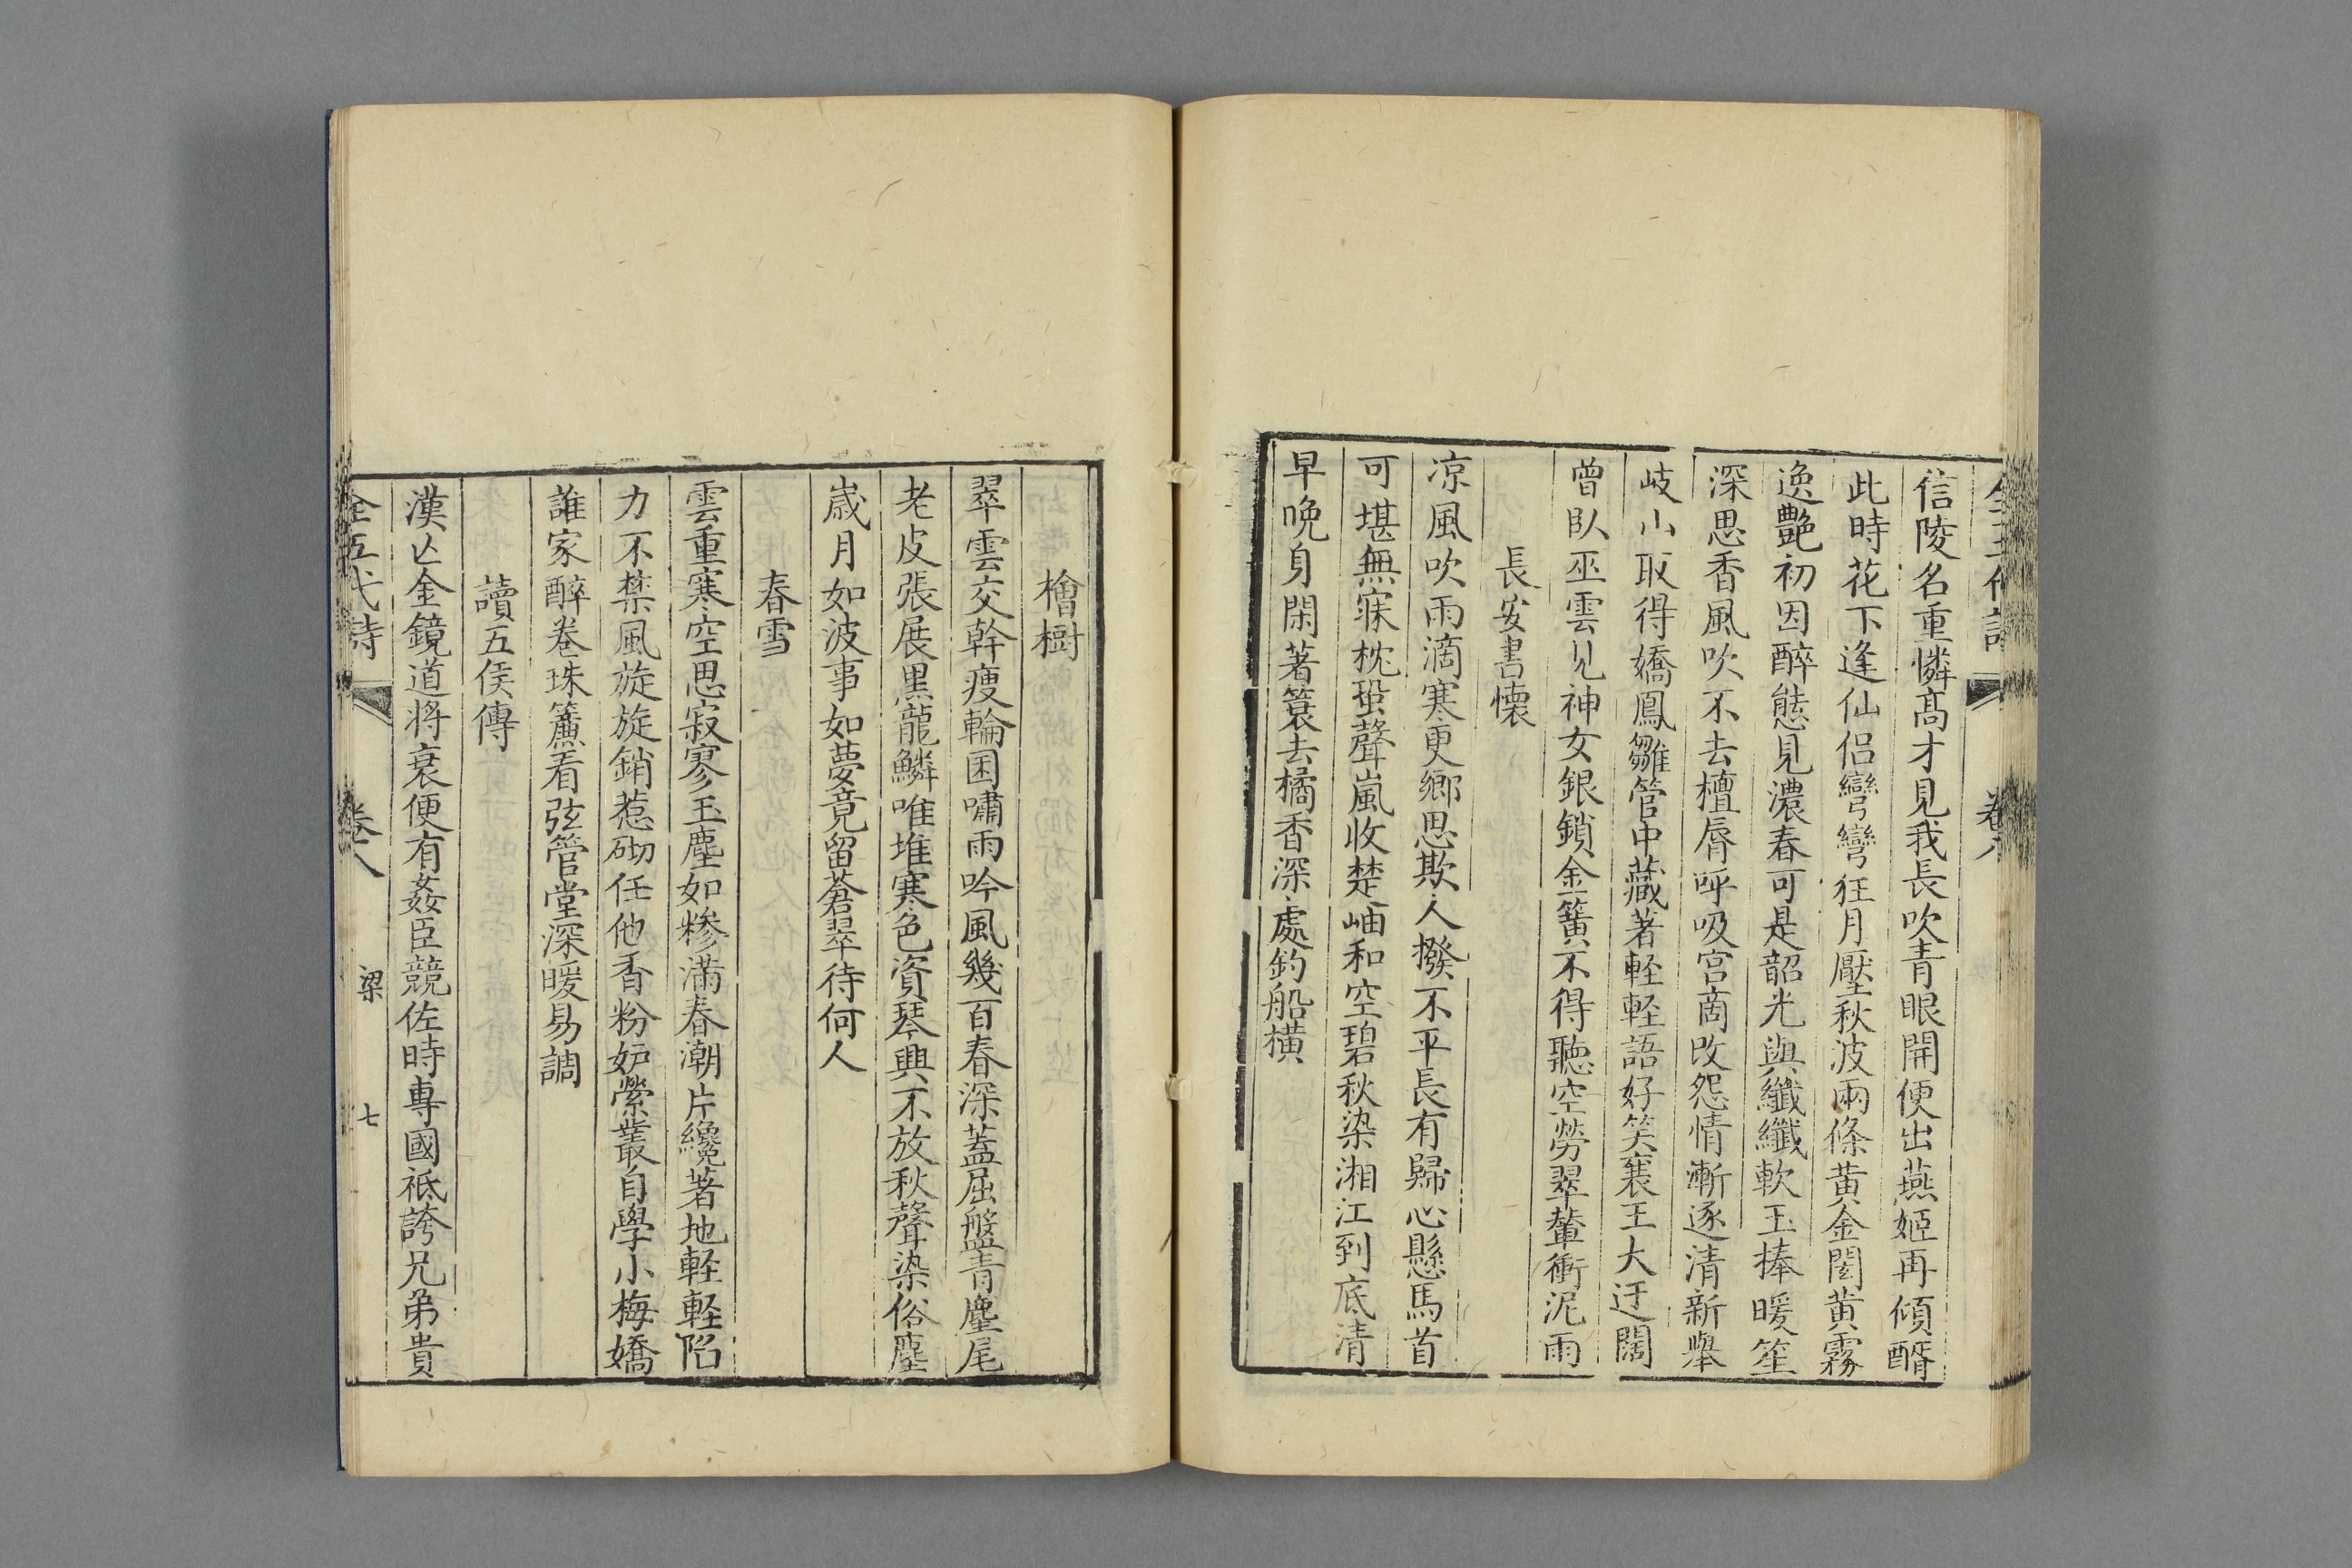 信陵名重憐髙才見我長吹青眼開便出燕姬再傾醑
此時花下逢仙侣彎彎狂月壓秋波兩條黄金閣黄霧
逸艷初因醉態見濃春可是韶光與纖纖軟玉捧暖笙
深思香風吹不去檀脣呼吸宫商改怨情漸逐清新舉
岐山取得嬌鳳雛管中藏著輕輕語好笑襄王大迂闊
曾臥巫雲見神女銀鎖金簧不得聽空勞翠輦衝泥雨
長安書懷
凉風吹雨滴寒更鄉思欺人撥不平長有歸心懸馬首
可堪無寐枕蛩聲嵐收楚岫和空碧秋染湘江到底清
早晩身閑著簑去橘香深處釣船横
檜樹
翠雲交幹瘦輪囷嘯雨吟風幾百春深蓋屈盤青麈尾
老皮張展黒龍鱗唯堆寒色資琴興不放秋聲染俗塵
歲月如波事如夢竟留蒼翠待何人
春雪
雲重寒空思寂寥玉塵如糝滿春潮片纔著地輕輕陷
力不禁風旋旋銷惹砌任他香粉妒縈叢自學小梅嬌
誰家醉卷珠簾看弦管堂深暖易調
讀五侯傳
漢亾金鏡道將衰便有姦臣競佐時專國祗誇兄弟貴
全五代詩 卷八 梁 七